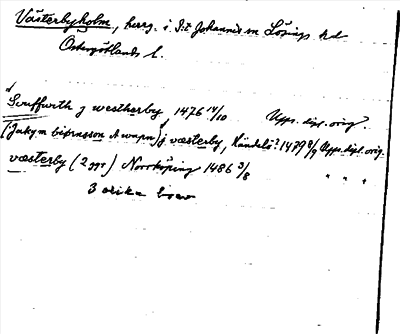 Västerbyholm, herrg. i S:t Johannis sn Lösings hd
Östergötlands l.
Svuffwith j westherby, 1476 14/10 Upps. dipl. orig.
(Jakym biörnsson A wapn) j væsterby, Händelö? 1479 8/9 Upps. dipl. orig.
væsterby (2 ggr) Norrköping 1486 3/8 " " "
3 olika brev